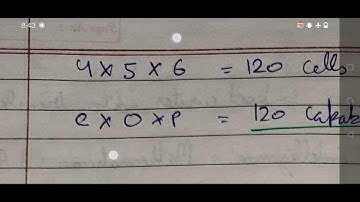 8:43
4 x 5 x 6 = 120 cells
C x O x P = 120 Capab